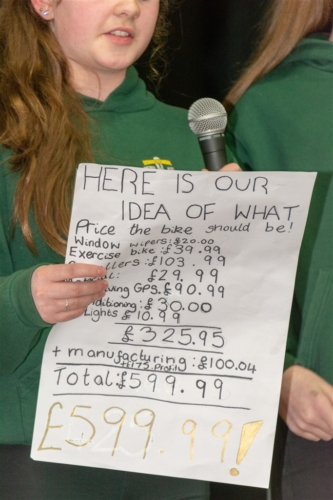 HERE IS OUR
IDEA OF WHAT
Price the bike should be!
Window wipers: £20.00
Exercise bike: £39.99
llers: £103.99
£29.99
GPS: £90.99
£30.00
Lights £10.99
£325.95
+ manufacturing: £100.04
Total: £599.99
£599.99!